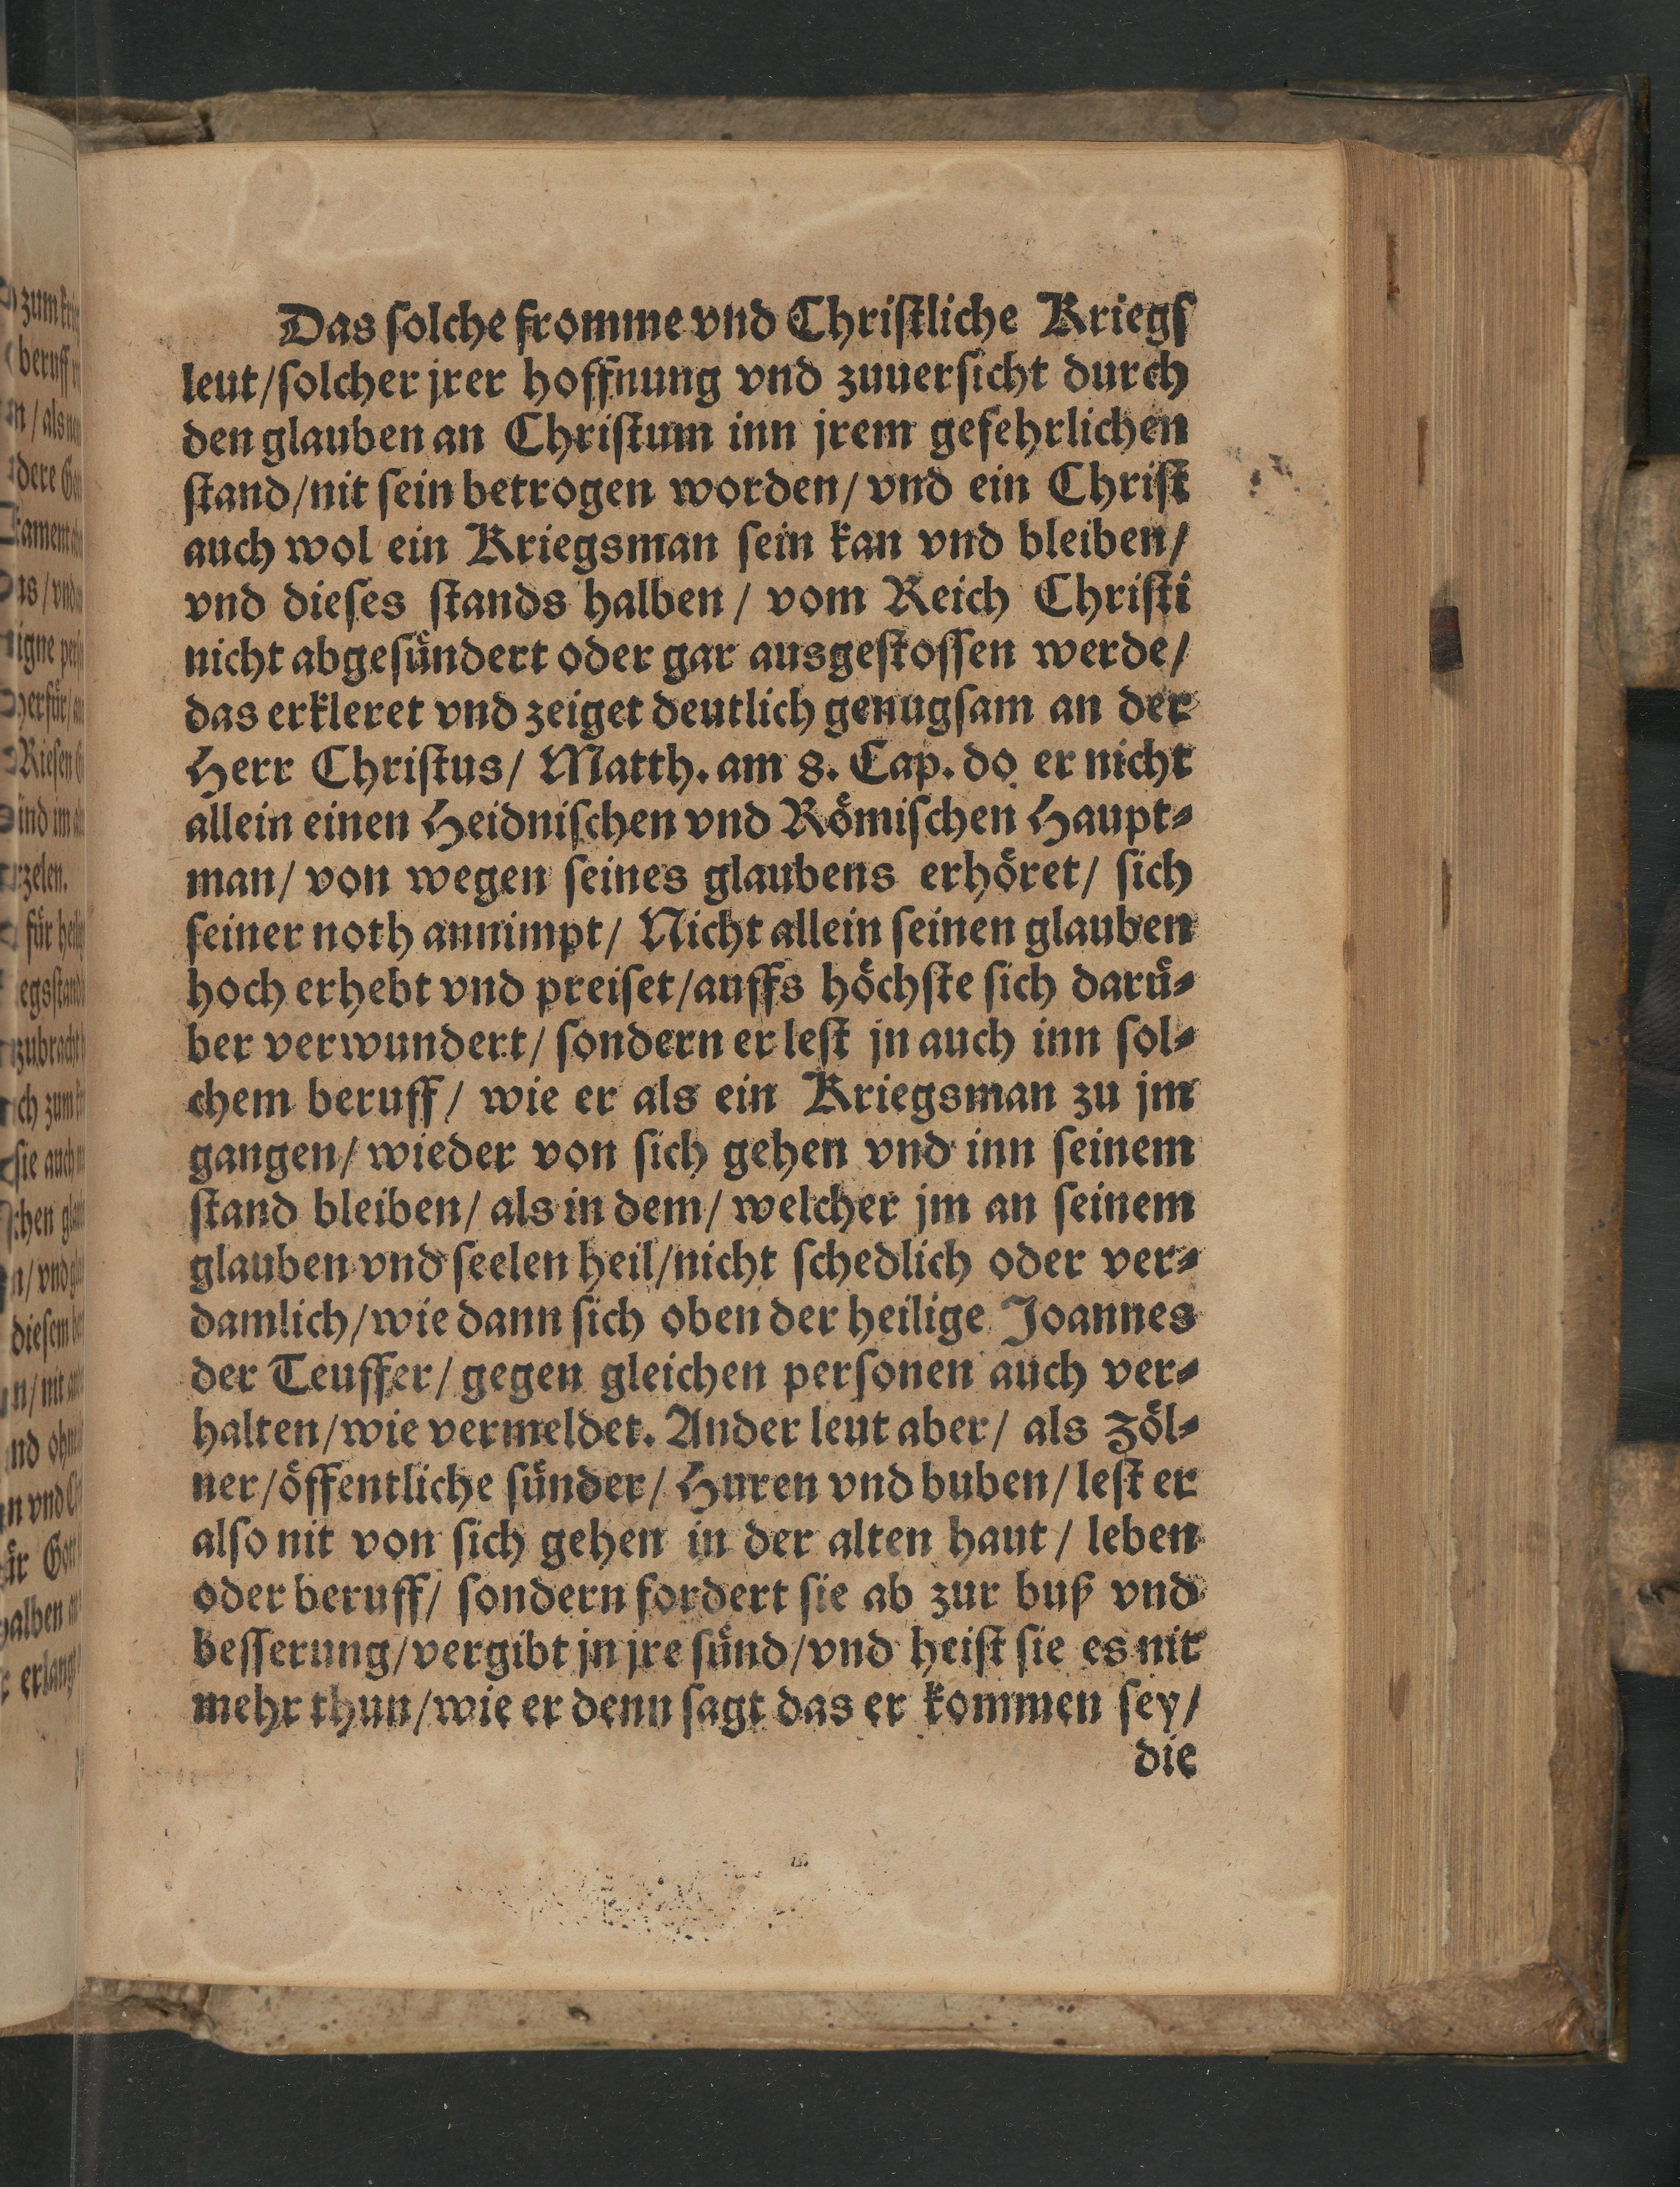 Das ſolche fromme vnd Chriſtliche Kriegſ
leut/ſolcher jrer hoffnung vnd zuuerſicht durch
den glauben an Chriſtum inn jrem gefehrlichen
ſtand/nit ſein betrogen worden/ vnd ein Chriſt
auch wol ein Kriegsman ſein kan vnd bleiben/
vnd dieſes ſtands halben / vom Reich Chriſti
nicht abgeſuͤndert oder gar ausgeſtoſſen werde/
das erkleret vnd zeiget deutlich genugſam an der
Herr Chriſtus/ Matth. am 8. Cap. do er nicht
allein einen Heidniſchen vnd Roͤmiſchen Haupt⸗
man/ von wegen ſeines glaubens erhoͤret/ ſich
ſeiner noth annimpt/ Nicht allein ſeinen glauben
hoch erhebt vnd preiſet/auffs hoͤchſte ſich daruͤ⸗
ber verwundert/ ſondern er leſt jn auch inn ſol⸗
chem beruff/ wie er als ein Kriegsman zu jm
gangen/ wieder von ſich gehen vnd inn ſeinem
ſtand bleiben/ als in dem/ welcher jm an ſeinem
glauben vnd ſeelen heil/nicht ſchedlich oder ver⸗
damlich/wie dann ſich oben der heilige Joannes
der Teuffer/ gegen gleichen perſonen auch ver⸗
halten/wie vermeldet. Ander leut aber/ als Zoͤl⸗
ner/oͤffentliche ſuͤnder/ Huren vnd buben/ leſt er
alſo nit von ſich gehen in der alten haut/ leben
oder beruff/ ſondern fordert ſie ab zur buß vnd
beſſerung/vergibt jn jre ſuͤnd/vnd heiſt ſie es nit
mehr thun/wie er denn ſagt das er kommen ſey/
die